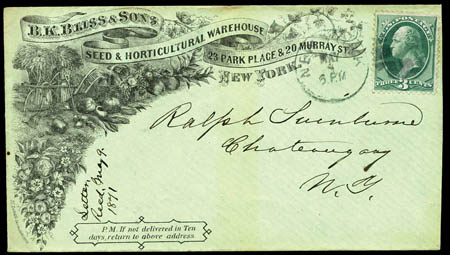 B.K. BLISS & SONS
SEED & HORTICULTURAL WAREHOUSE
23 PARK PLACE & 20 MURRAY ST.
NEW YORK
NE
5 PM
U.S. POSTAGE
THREE 3 CENTS
Ralph
Chateaugay
N.Y.
Letter,
Recd, May 9
1871
P.M. If not delivered in Ten
days, return to above address